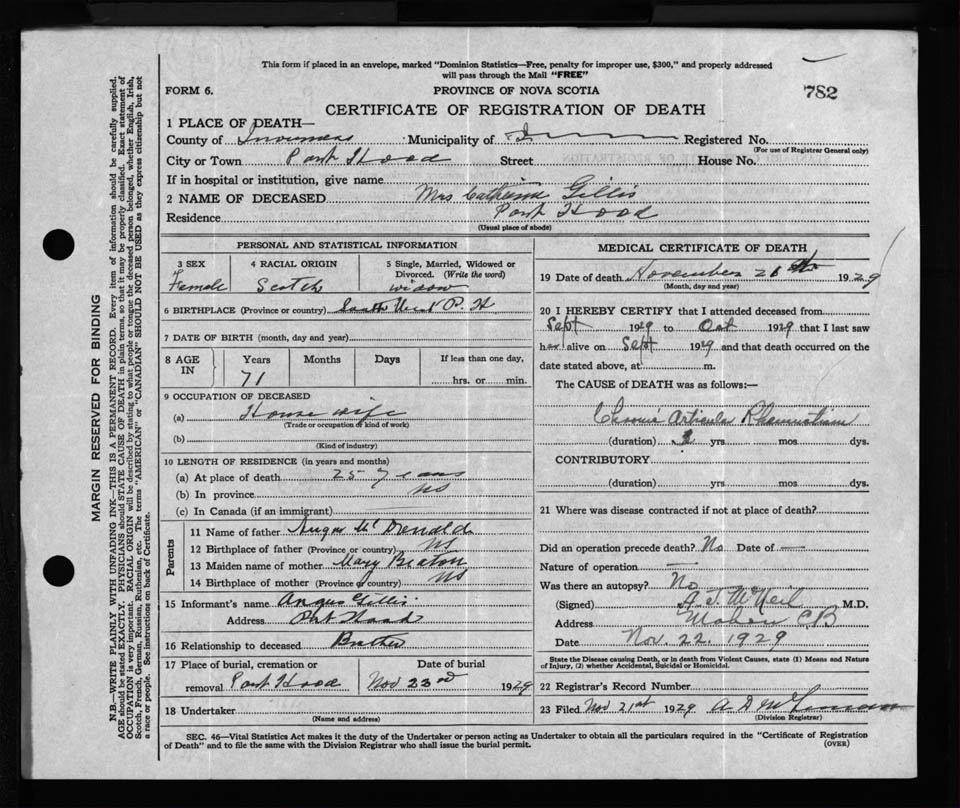 This form if placed in an envelope, marked "Dominion Statistics—Free, penalty for improper use, $300," and properly addressed
will pass through the Mail "FREE"
FORM 6.
PROVINCE OF NOVA SCOTIA
782
CERTIFICATE OF REGISTRATION OF DEATH
1 PLACE OF DEATH—
County of Inverness Municipality of Registered No.
(For use of Registrar General only)
City or Town Port Hood Street House No.
If in hospital or institution, give name
2 NAME OF DECEASED Mrs Catherine Gillis
Residence Port Hood
(Usual place of abode)
PERSONAL AND STATISTICAL INFORMATION
3 SEX
Female
4 RACIAL ORIGIN
Scotch
5 Single, Married, Widowed or
Divorced. (Write the word)
widow
6 BIRTHPLACE (Province or country) South West P. H
7 DATE OF BIRTH (month, day and year)
8 AGE IN
Years Months Days If less than one day,
71 hrs. or min.
9 OCCUPATION OF DECEASED
(a) House wife
(Trade or occupation or kind of work)
(b)
(Kind of industry)
10 LENGTH OF RESIDENCE (in years and months)
(a) At place of death 25 years
(b) In province NS
(c) In Canada (if an immigrant)
Parents
11 Name of father Angus McDonald
12 Birthplace of father (Province or country) NS
13 Maiden name of mother Mary Beaton
14 Birthplace of mother (Province or country) NS
15 Informant's name Angus Gillis
Address Port Hood
16 Relationship to deceased
17 Place of burial, cremation or Date of burial
removal Port Hood Nov 23rd 1929
18 Undertaker
(Name and address)
MEDICAL CERTIFICATE OF DEATH
19 Date of death November 1929
(Month, day and year)
20 I HEREBY CERTIFY that I attended deceased from
Sept 1929 to Oct 1929 that I last saw
her alive on Sept 1929 and that death occurred on the
date stated above, at m.
The CAUSE of DEATH was as follows:—
Chronic Articular Rheumatism
(duration) yrs. mos. dys.
CONTRIBUTORY
(duration) yrs. mos. dys.
21 Where was disease contracted if not at place of death?
Did an operation precede death? No Date of —
Nature of operation —
Was there an autopsy? No
(Signed) A. J. McNeil M.D.
Address Mabou CB
Date Nov. 22. 1929
State the Disease causing Death, or in death from Violent Causes, state (1) Means and Nature
of Injury, (2) whether Accidental, Suicidal or Homicidal.
22 Registrar's Record Number
23 Filed Nov 21st 1929 A D
(Division Registrar)
SEC. 46—Vital Statistics Act makes it the duty of the Undertaker or person acting as Undertaker to obtain all the particulars required in the "Certificate of Registration
of Death" and to file the same with the Division Registrar who shall issue the burial permit.
(OVER)
MARGIN RESERVED FOR BINDING
N.B.—WRITE PLAINLY WITH UNFADING INK—THIS IS A PERMANENT RECORD. Every item of information should be carefully supplied.
AGE should be stated EXACTLY. PHYSICIANS should STATE CAUSE OF DEATH in plain terms, so that it may be properly classified. Exact statement of
OCCUPATION is very important. RACIAL ORIGIN will be described by stating to what people or tongue the deceased person belonged, whether English, Irish,
Scotch, French, German, Russian, Ruthenian, etc. The terms "AMERICAN" or "CANADIAN" SHOULD NOT BE USED as they express citizenship but not
a race or people. See instructions on back of Certificate.